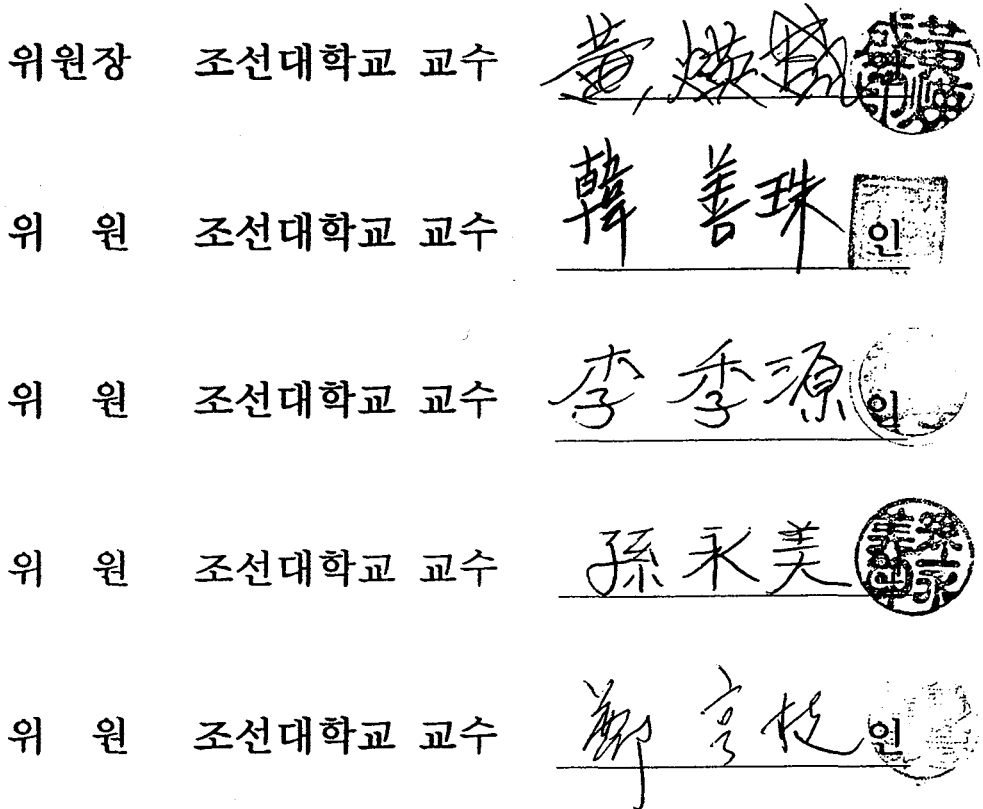 위원장 조선대학교 교수 黃 煐
위 원 조선대학교 교수 韓 善珠 인
위 원 조선대학교 교수 李 季源 인
위 원 조선대학교 교수 孫永美
위 원 조선대학교 교수 鄭 亨 인